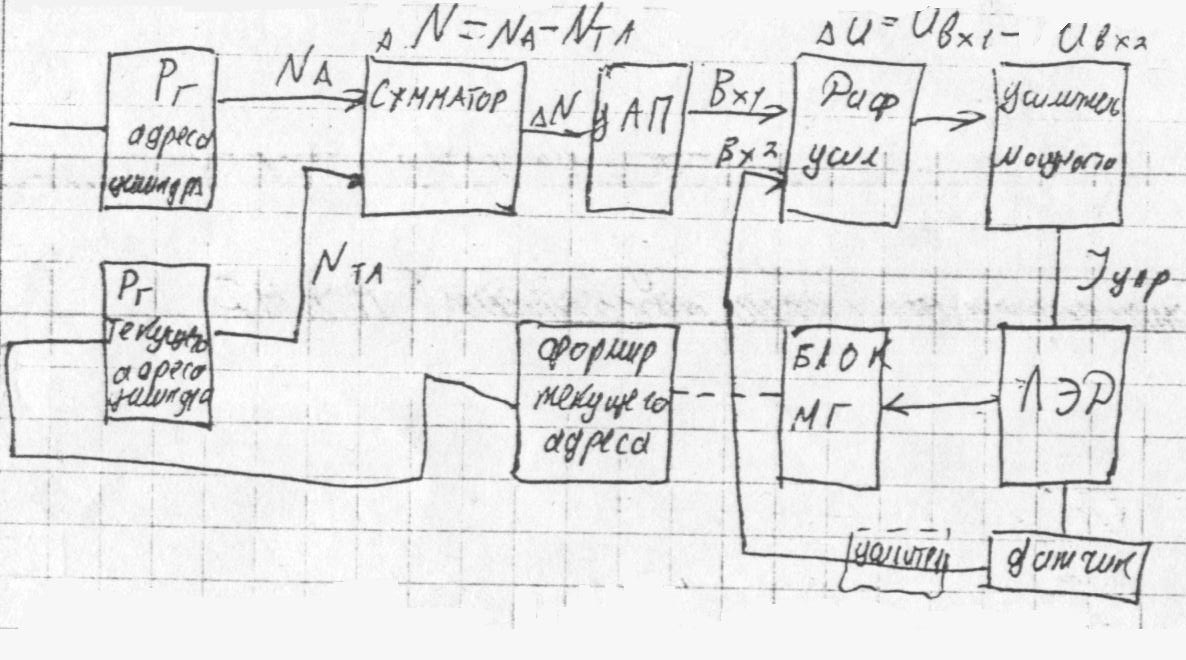 ΔN = NА - NТА
ΔU = Uвх1 - Uвх2
Рг
адреса
цилиндра
NА
СУММАТОР
ΔN
ЦАП
Вх1
Вх2
Диф
усил
усилител
мощности
Рг
текущего
адреса
цилиндра
NТА
формир
текущего
адреса
БЛОК
МГ
Jупр
ЛЭД
усилител
датчик